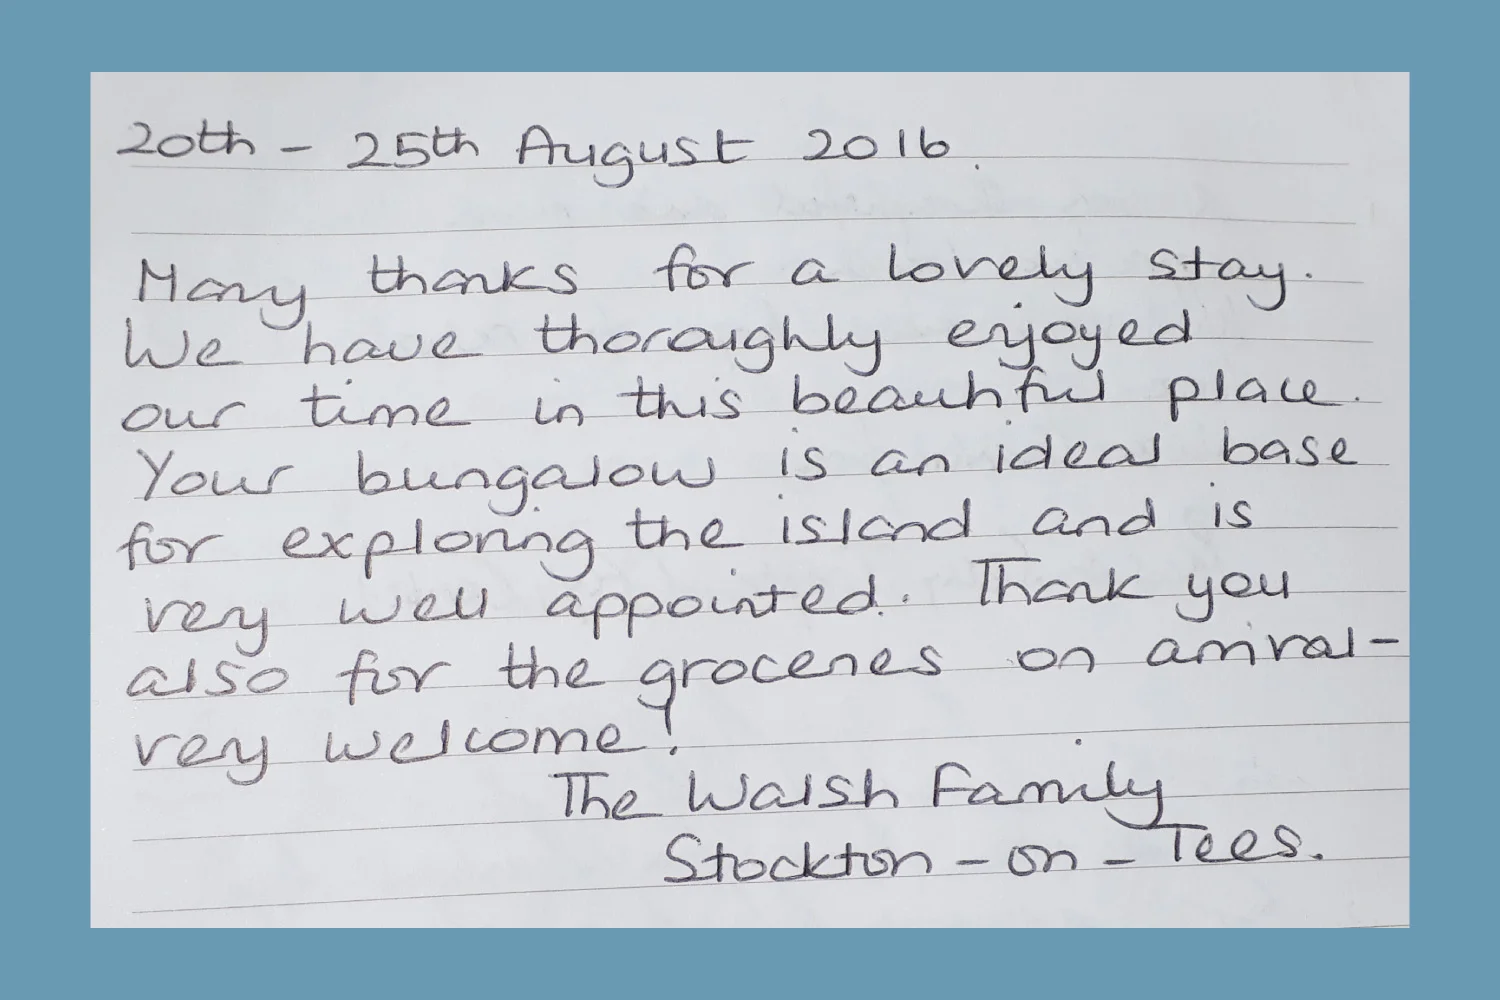 20th - 25th August 2016.
Many thanks for a lovely stay.
We have thoroughly enjoyed
our time in this beautiful place.
Your bungalow is an ideal base
for exploring the island and is
very well appointed. Thank you
also for the groceries on arrival -
very welcome!
The Walsh Family
Stockton - on - Tees.